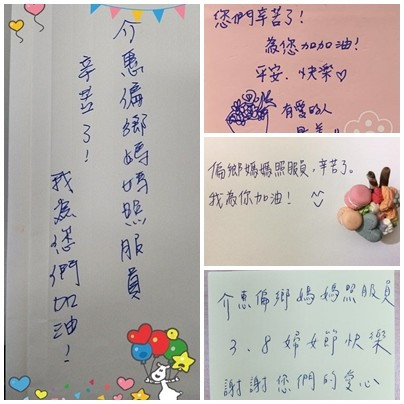 介惠偏鄉媽媽照服員
辛苦了！
我為您們加油！
您們辛苦了！
為您加加油！
平安、快樂♡
有愛的人
偏鄉媽媽照服員，辛苦了。
我為你加油！
介惠偏鄉媽媽照服員
3.8婦女節快樂
謝謝您們的愛心